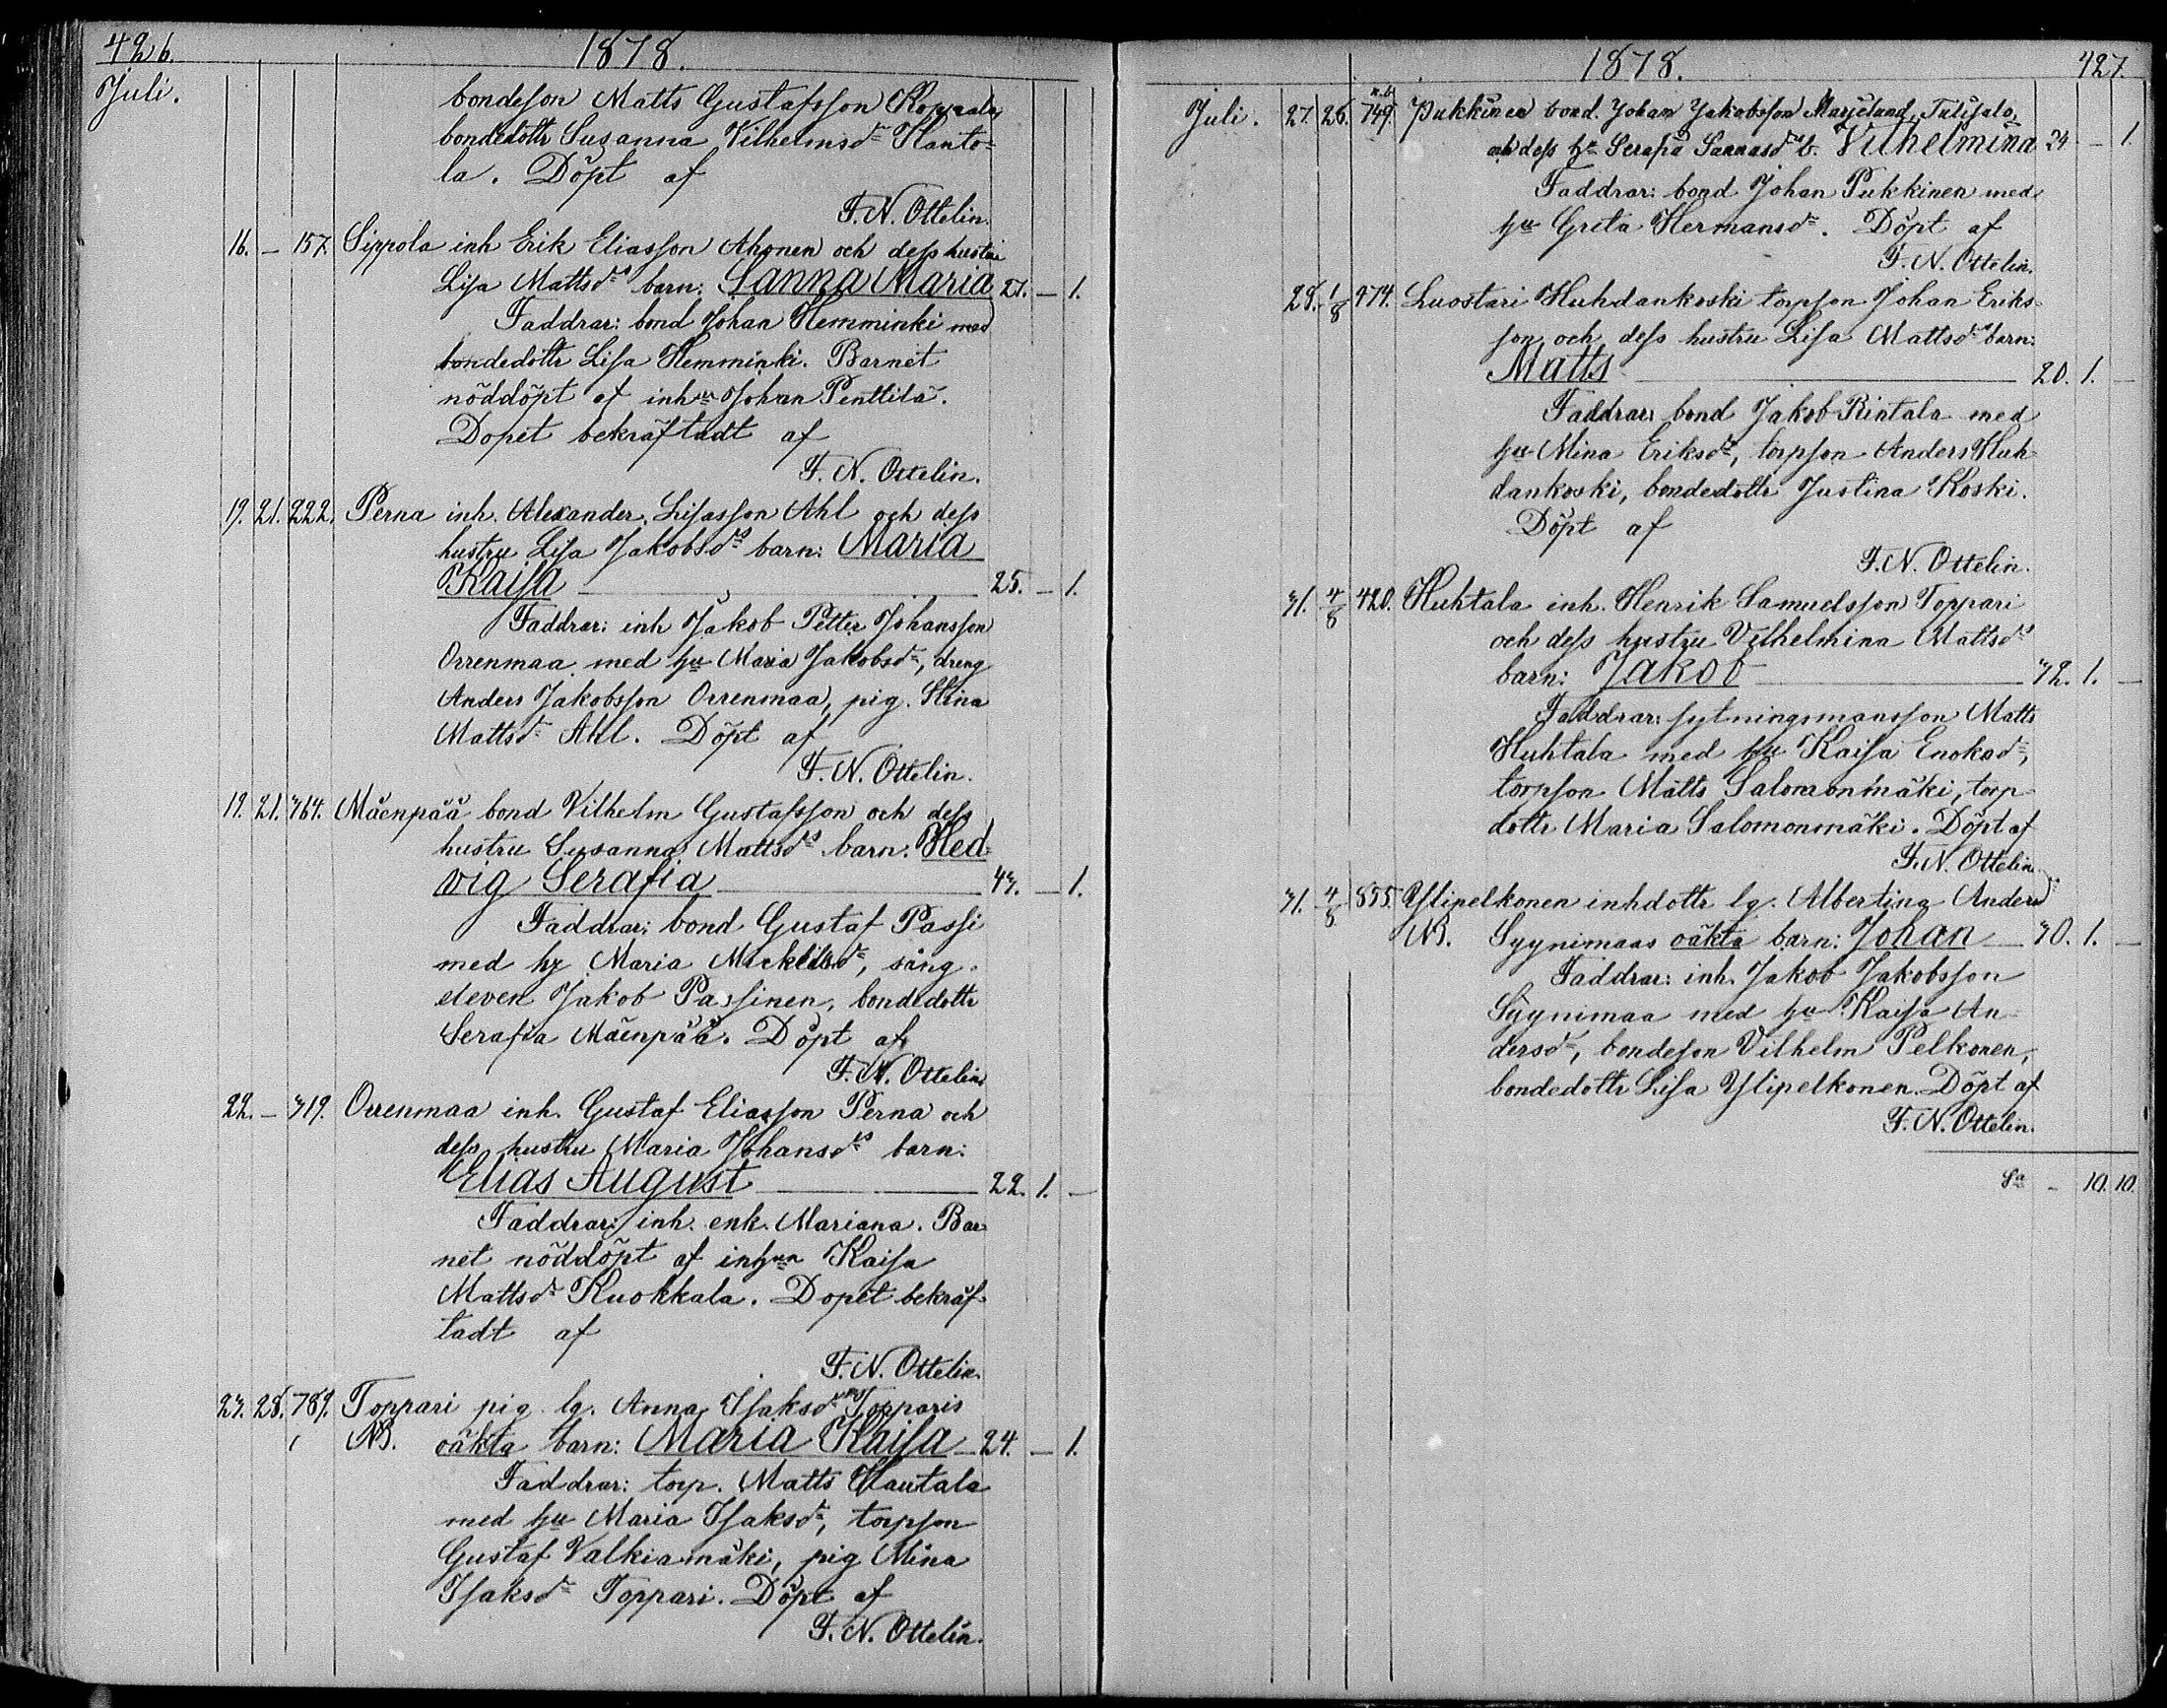 426. 1878.
Juli. bondeson Matts Gustafsson Koppala,
bondedottr Susanna Vilhelmsdr Kanto-
la. Döpt af
F. N. Ottelin.
16. — 157. Sippola inh Erik Eliasson Ahonen och dess hustru
Lisa Mattsdrs barn: Sanna Maria 27. — 1.
Faddrar: bond Johan Hemminki med
bondedottr Lisa Hemminki. Barnet
nöddöpt af inhn Johan Penttilä.
Dopet bekräftadt af
F. N. Ottelin.
19. 21. 222. Perna inh. Alexander Lisasson Ahl och dess
hustru Lisa Jakobsdrs barn: Maria
Kaisa — 25. — 1.
Faddrar: inh Jakob Petter Johansson
Orrenmaa med hu Maria Jakobsdr, dreng
Anders Jakobsson Orrenmaa, pig. Stina
Mattsdr Ahl. Döpt af
F. N. Ottelin.
19. 21. 364. Mäenpää bond Vilhelm Gustafsson och dess
hustru Susanna Mattsdrs barn: Hed-
vig Serafia — 43. — 1.
Faddrar: bond Gustaf Passi
med hu Maria Mickelsdr, sång-
eleven Jakob Passinen, bondedottr
Serafia Mäenpää. Döpt af
F. N. Ottelin.
22. — 319. Orrenmaa inh. Gustaf Eliasson Perna och
dess hustru Maria Johansdrs barn:
Elias August — 22. 1. —
Faddrar: inh. enk. Mariana. Bar-
net nöddöpt af inhun Kaisa
Mattsdr Kuokkala. Dopet bekräf-
tadt af
F. N. Ottelin.
23. 28. 789. Toppari pig lg. Anna Isaksdr Topparis
NB. oäkta barn: Maria Kaisa — 24. — 1.
Faddrar: torp. Matts Hautala
med hu Maria Isaksdr, torpson
Gustaf Valkiamäki, pig Mina
Isaksdr Toppari. Döpt af
F. N. Ottelin.
1878. 427.
Juli. 27. 28. n.b. 749. Pukkinen bond. Johan Jakobsson Marjeland, Tulisalo,
och dess hu Serafia Sannasdrs b. Vilhelmina 24 — 1.
Faddrar: bond Johan Pukkinen med
hu Greta Hermansdr. Döpt af
F. N. Ottelin.
28. 1/8 974. Luostari Huhdankoski torpson Johan Eriks-
son och dess hustru Lisa Mattsdrs barn:
Matts — 20. 1. —
Faddrar: bond Jakob Rintala med
hu Mina Eriksdr, torpson Anders Huh-
dankoski, bondedottr Justina Koski.
Döpt af
F. N. Ottelin.
31. 4/8 420. Huhtala inh. Henrik Samuelsson Toppari
och dess hustru Vilhelmina Mattsdrs
barn: Jakob — 32. 1. —
Faddrar: sytningsmansson Matts
Huhtala med hu Kaisa Enoksdr,
torpson Matts Salomonmäki, torp-
dottr Maria Salomonmäki. Döpt af
F. N. Ottelin.
31. 4/8 855. Ylipelkonen inhdottr lg. Albertina Andersdr
NB. Syynimaas oäkta barn: Johan — 30. 1. —
Faddrar: inh. Jakob Jakobsson
Syynimaa med hu Kaisa An-
dersdr, bondeson Vilhelm Pelkonen,
bondedottr Lisa Ylipelkonen. Döpt af
F. N. Ottelin.
Sa — 10. 10.